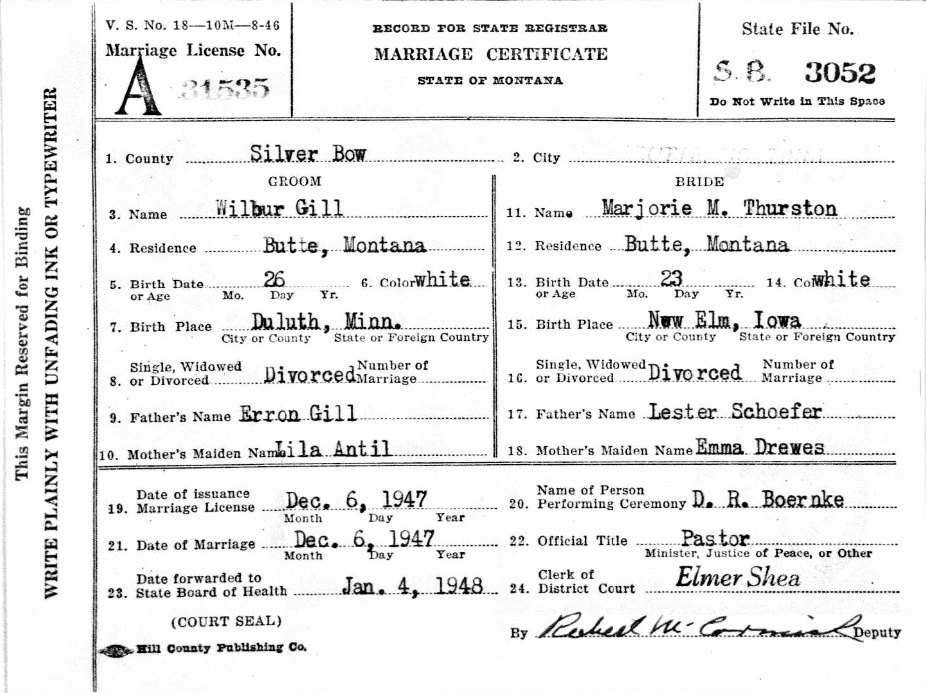 V. S. No. 18—10M—8-46
Marriage License No.
A 31535
RECORD FOR STATE REGISTRAR
MARRIAGE CERTIFICATE
STATE OF MONTANA
State File No.
S. B. 3052
Do Not Write in This Space
This Margin Reserved for Binding
WRITE PLAINLY WITH UNFADING INK OR TYPEWRITER
1. County Silver Bow
2. City
GROOM
3. Name Wilbur Gill
4. Residence Butte, Montana
5. Birth Date or Age 26 6. Color white
Mo. Day Yr.
7. Birth Place Duluth, Minn.
City or County State or Foreign Country
8. Single, Widowed or Divorced Divorced Number of Marriage
9. Father's Name Erron Gill
10. Mother's Maiden Name Lila Antil
BRIDE
11. Name Marjorie M. Thurston
12. Residence Butte, Montana
13. Birth Date or Age 23 14. Co white
Mo. Day Yr.
15. Birth Place New Elm, Iowa
City or County State or Foreign Country
16. Single, Widowed or Divorced Divorced Number of Marriage
17. Father's Name Lester Schoefer
18. Mother's Maiden Name Emma Drewes
19. Date of issuance Marriage License Dec. 6, 1947
Month Day Year
20. Name of Person Performing Ceremony D. R. Boernke
21. Date of Marriage Dec. 6, 1947
Month Day Year
22. Official Title Pastor
Minister, Justice of Peace, or Other
23. Date forwarded to State Board of Health Jan. 4, 1948
24. Clerk of District Court Elmer Shea
(COURT SEAL)
By Robert McCormick Deputy
Hill County Publishing Co.